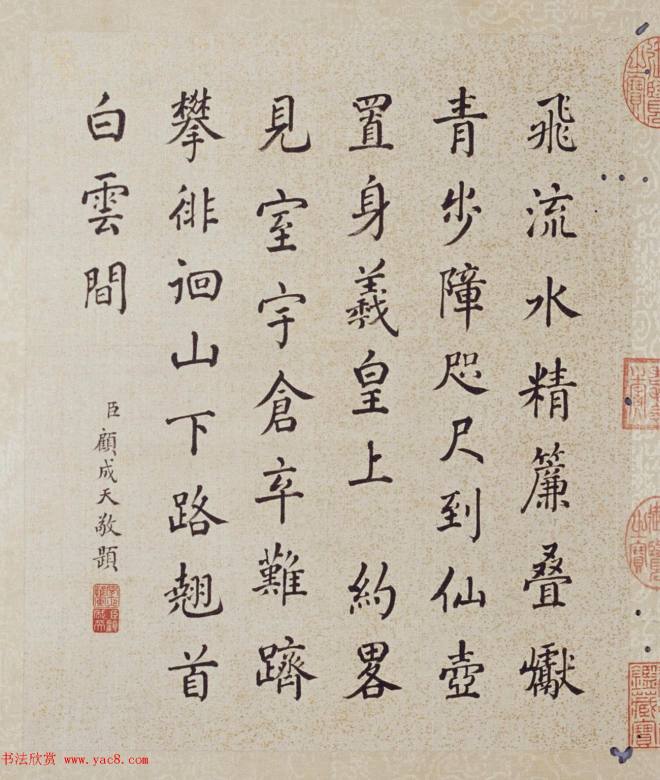 飛流水精簾叠巘
青步障咫尺到仙壺
置身羲皇上約畧
見室宇倉卒難躋
攀徘徊山下路翹首
白雲間
臣顧成天敬題
书法欣赏 www.yac8.com